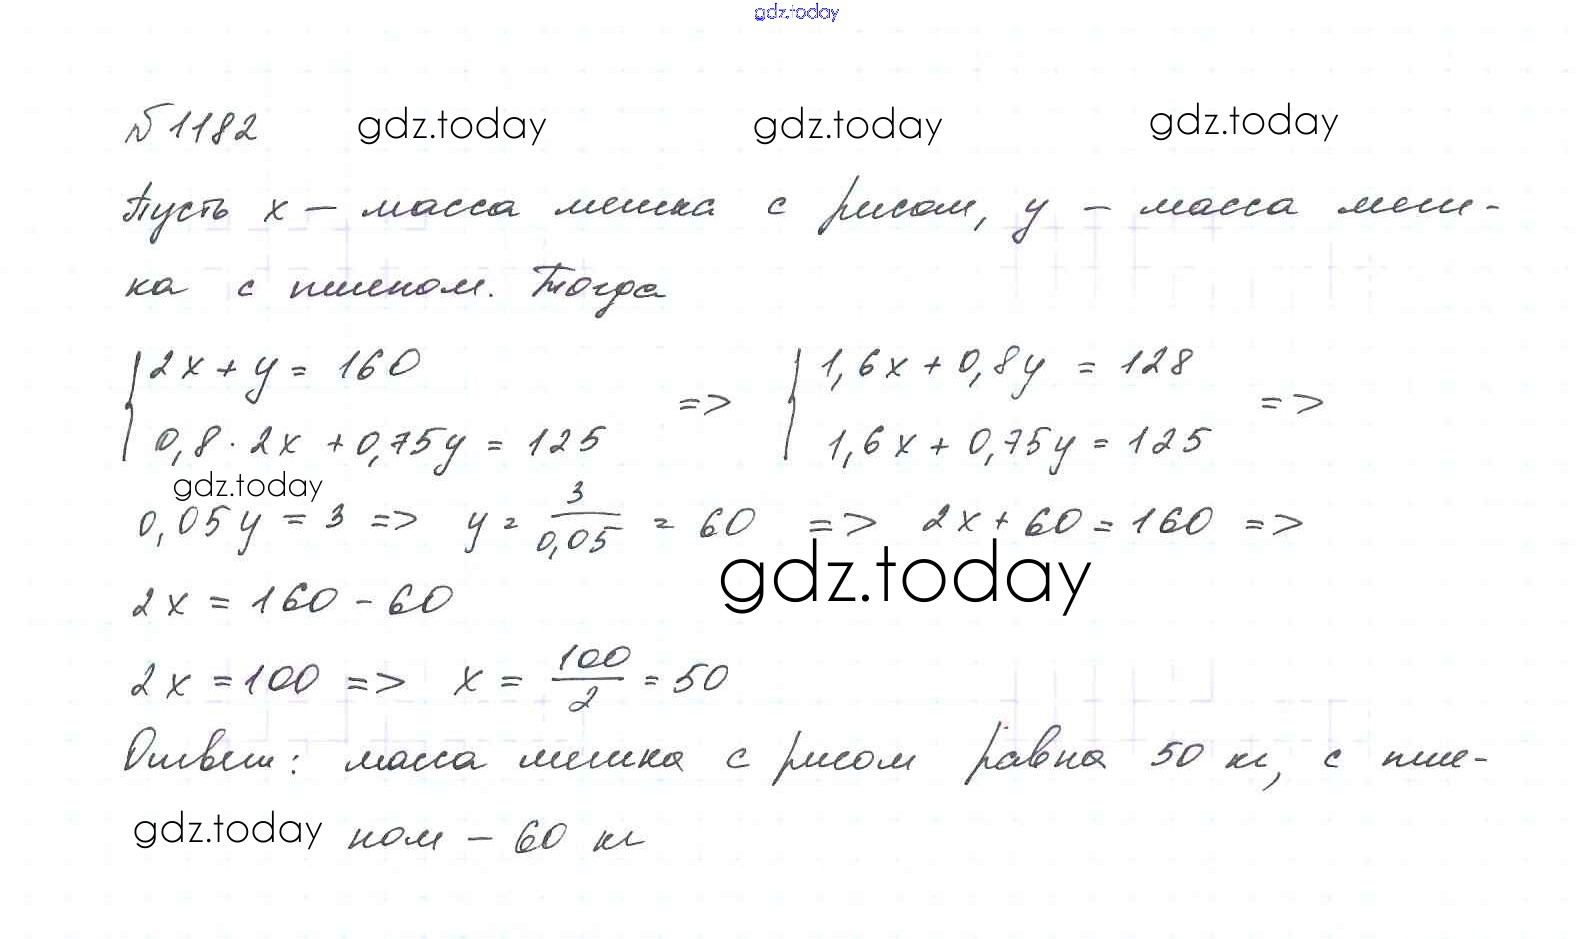 gdz.today
№ 1182 gdz.today gdz.today gdz.today
Пусть x – масса мешка с рисом, y – масса меш-
ка с пшеном. Тогда
{ 2x + y = 160 => { 1,6x + 0,8y = 128 =>
0,8 · 2x + 0,75y = 125 1,6x + 0,75y = 125
gdz.today
0,05y = 3 => y = 3/0,05 = 60 => 2x + 60 = 160 =>
gdz.today
2x = 160 - 60
2x = 100 => x = 100/2 = 50
Ответ: масса мешка с рисом равна 50 кг, с пше-
gdz.today ном – 60 кг